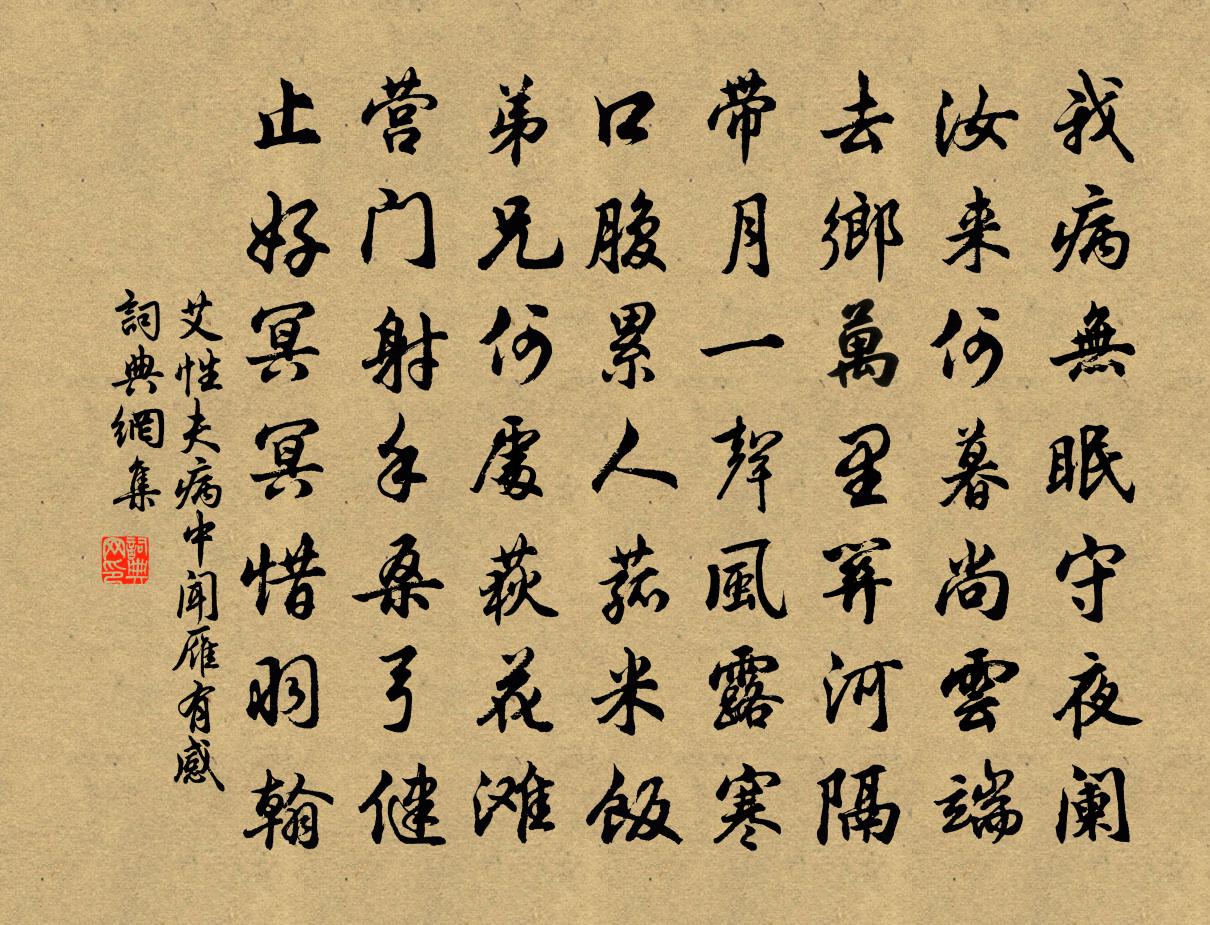 我病無眠守夜阑
汝来何暮尚雲端
去鄉萬里關河隔
带月一聲風露寒
口腹累人菰米飯
弟兄何處萩花滩
营门射手桑弓健
止好冥冥惜羽翰
艾性夫病中闻雁有感
詞典網集